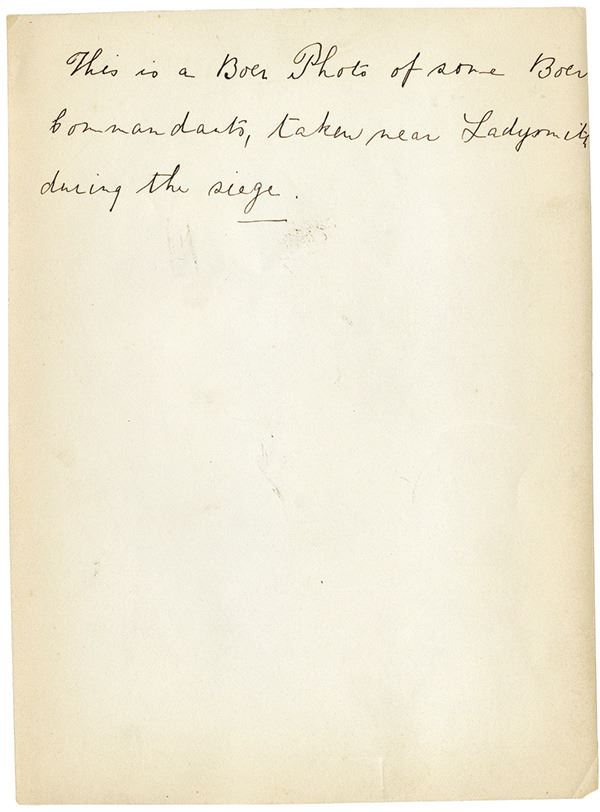 This is a Boer Photo of some Boer
Commandants, taken near Ladysmith
during the siege.